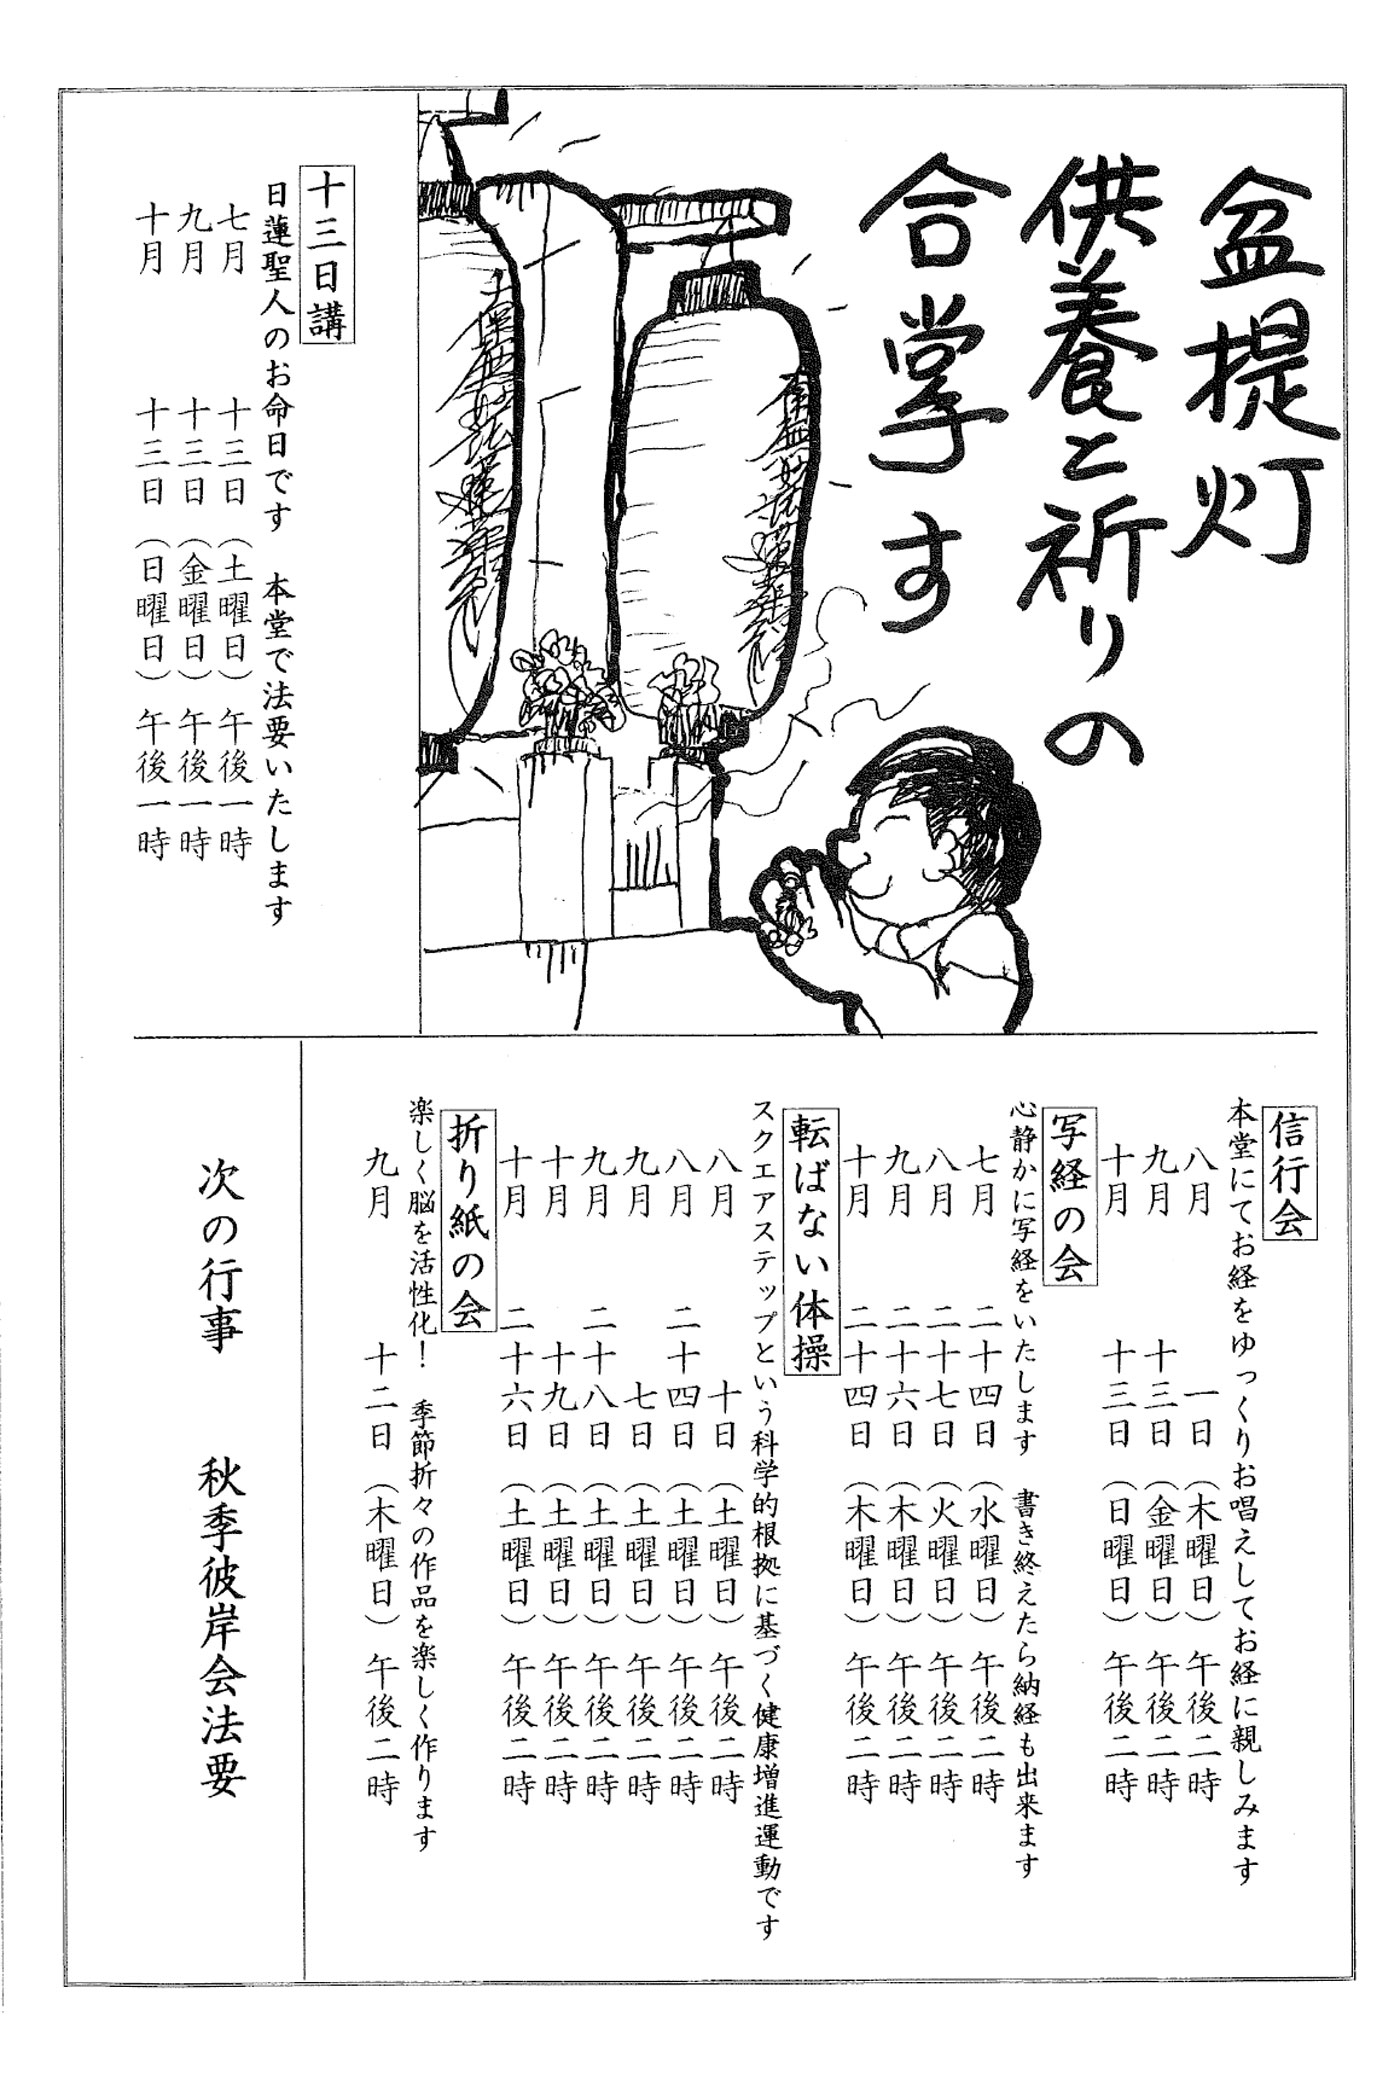 盆提灯
供養と祈りの
合掌す
南無妙法蓮華経
十三日講
日蓮聖人のお命日です　本堂で法要いたします
七月　十三日（土曜日）午後一時
九月　十三日（金曜日）午後一時
十月　十三日（日曜日）午後一時
信行会
本堂にてお経をゆっくりお唱えしてお経に親しみます
八月　一日（木曜日）午後二時
九月　十三日（金曜日）午後二時
十月　十三日（日曜日）午後二時
写経の会
心静かに写経をいたします　書き終えたら納経も出来ます
七月　二十四日（水曜日）午後二時
八月　二十七日（火曜日）午後二時
九月　二十六日（木曜日）午後二時
十月　二十四日（木曜日）午後二時
転ばない体操
スクエアステップという科学的根拠に基づく健康増進運動です
八月　十日（土曜日）午後二時
八月　二十四日（土曜日）午後二時
九月　七日（土曜日）午後二時
九月　二十八日（土曜日）午後二時
十月　十九日（土曜日）午後二時
十月　二十六日（土曜日）午後二時
折り紙の会
楽しく脳を活性化！　季節折々の作品を楽しく作ります
九月　十二日（木曜日）午後二時
次の行事　秋季彼岸会法要